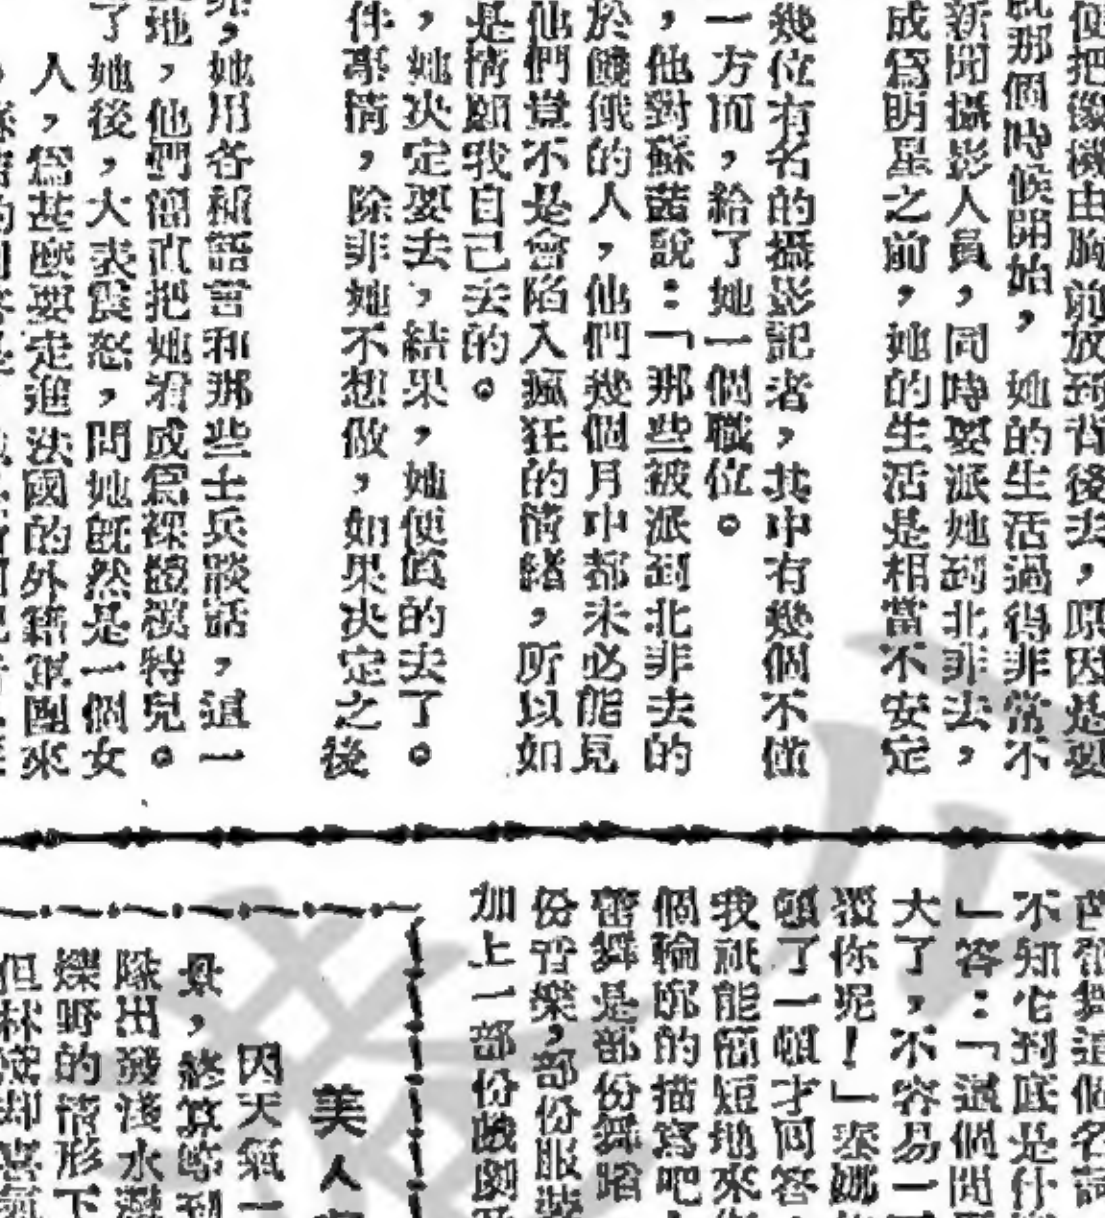 便把像機由胸前放到背後去，原因是要
就那個時候開始，她的生活過得非常不
新聞攝影人員，同時要派她到北非去，
成爲明星之前，她的生活是相當不安定
幾位有名的攝影記者，其中有幾個不僅
一方面，給了她一個職位。
，他對蘇茜說：「那些被派到北非去的
於饑餓的人，他們幾個月中都未必能見
他們豈不是會陷入瘋狂的情緒，所以如
是情願我自己去的。
，她決定要去，結果，她便眞的去了。
件事情，除非她不想做，如果決定之後
，她用各種語言和那些士兵談話，這一
地，他們簡直把她看成爲裸體模特兒。
了她後，大表震怒，問她既然是一個女
人，爲甚麽要走進法國的外籍軍團來
芭蕾舞這個名詞
不知它到底是什
」答：「這個問
大了，不容易一
覆你呢！」塞娜
頓了一頓才回答
我祇能簡短地來
個輪廓的描寫吧
蕾舞是部份舞蹈
份音樂，部份服裝
加上一部份戲劇
美人
因天氣一
景，終算
隊出發淺水灣
爍野的情形下
但林